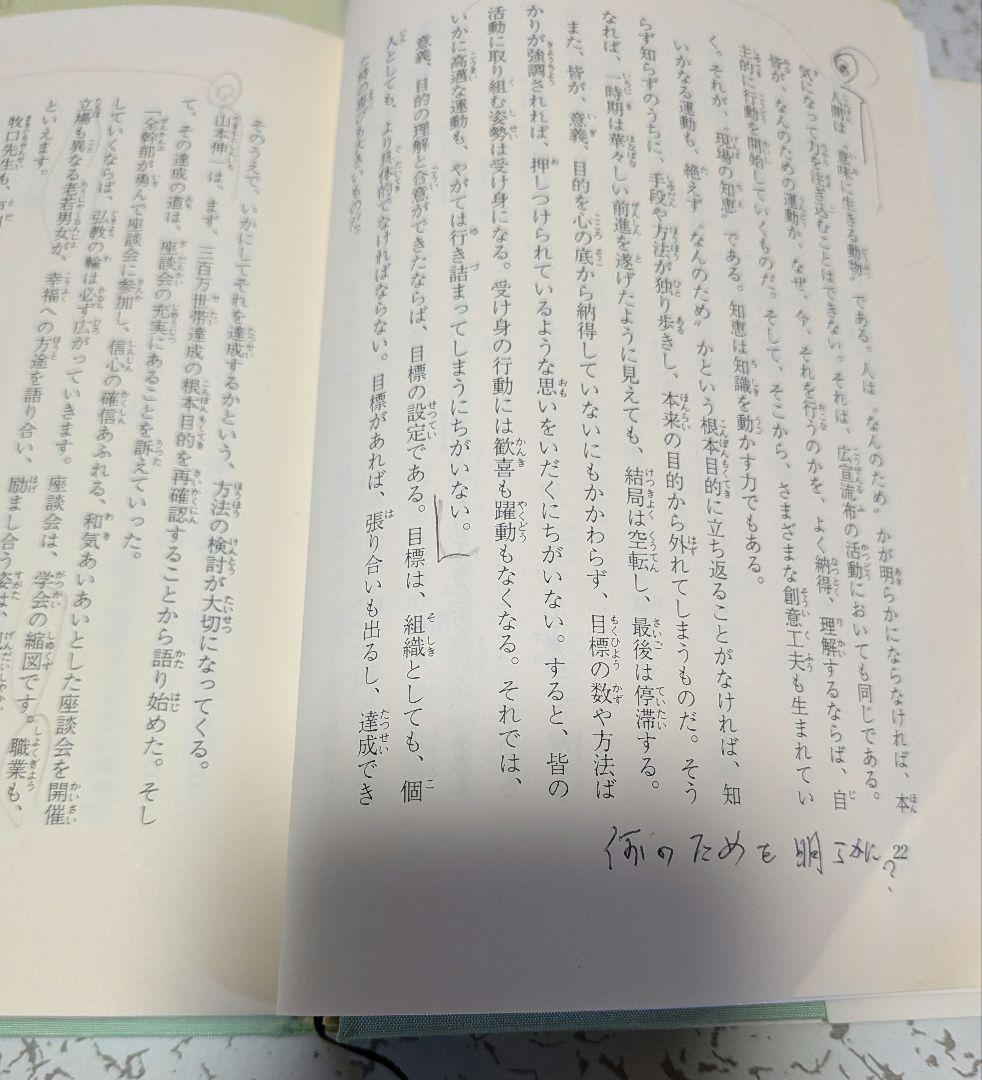 人間は〝意味に生きる動物〟である。人は〝なんのため〟かが明らかにならなければ、本
気になって力を注ぎ込むことはできない。それは、広宣流布の活動においても同じである。
皆が、なんのための運動か、なぜ、今、それを行うのかを、よく納得、理解するならば、自
主的に行動を開始していくものだ。そして、そこから、さまざまな創意工夫も生まれてい
く。それが、〝現場の知恵〟である。知恵は知識を動かす力でもある。
いかなる運動も、絶えず〝なんのため〟かという根本目的に立ち返ることがなければ、知
らず知らずのうちに、手段や方法が独り歩きし、本来の目的から外れてしまうものだ。そう
なれば、一時期は華々しい前進を遂げたように見えても、結局は空転し、最後は停滞する。
また、皆が、意義、目的を心の底から納得していないにもかかわらず、目標の数や方法ば
かりが強調されれば、押しつけられているような思いをいだくにちがいない。すると、皆の
活動に取り組む姿勢は受け身になる。受け身の行動には歓喜も躍動もなくなる。それでは、
いかに高邁な運動も、やがては行き詰まってしまうにちがいない。
意義、目的の理解と合意ができたならば、目標の設定である。目標は、組織としても、個
人としても、より具体的でなければならない。目標があれば、張り合いも出るし、達成でき
た時の喜びも大きいものだ。
22
何のためを明らかに?
そのうえで、いかにしてそれを達成するかという、方法の検討が大切になってくる。
山本伸一は、まず、三百万世帯達成の根本目的を再確認することから語り始めた。そし
て、その達成の道は、座談会の充実にあることを訴えていった。
「全幹部が勇んで座談会に参加し、信心の確信あふれる、和気あいあいとした座談会を開催
していくならば、弘教の輪は必ず広がっていきます。座談会は、学会の縮図です。職業も、
立場も異なる老若男女が、幸福への方途を語り合い、励まし合う姿は、
といえます。
牧口先生も、